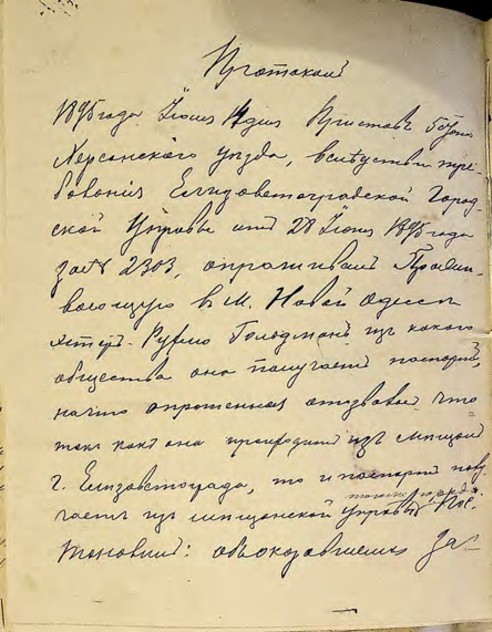 Протоколъ
1895 года Іюля 14 дня Приставъ 5 стана
Херсонскаго уѣзда, вслѣдствіи тре-
бованія Елизаветградской Город-
ской Управы отъ 28 Іюня 1895 года
за № 2303, спрашивалъ Прожи-
вающую въ М. Новой Одессѣ
Эстеръ-Рухлю Гольдманъ изъ какого
общества она получаетъ паспортъ,
на что спрошенная отозвалась что
такъ какъ она происходитъ изъ мѣщанъ
г. Елизаветграда, то и паспортъ полу-
чаетъ изъ мѣщанской управы Пос-
тановилъ: объ оказавшемся за-